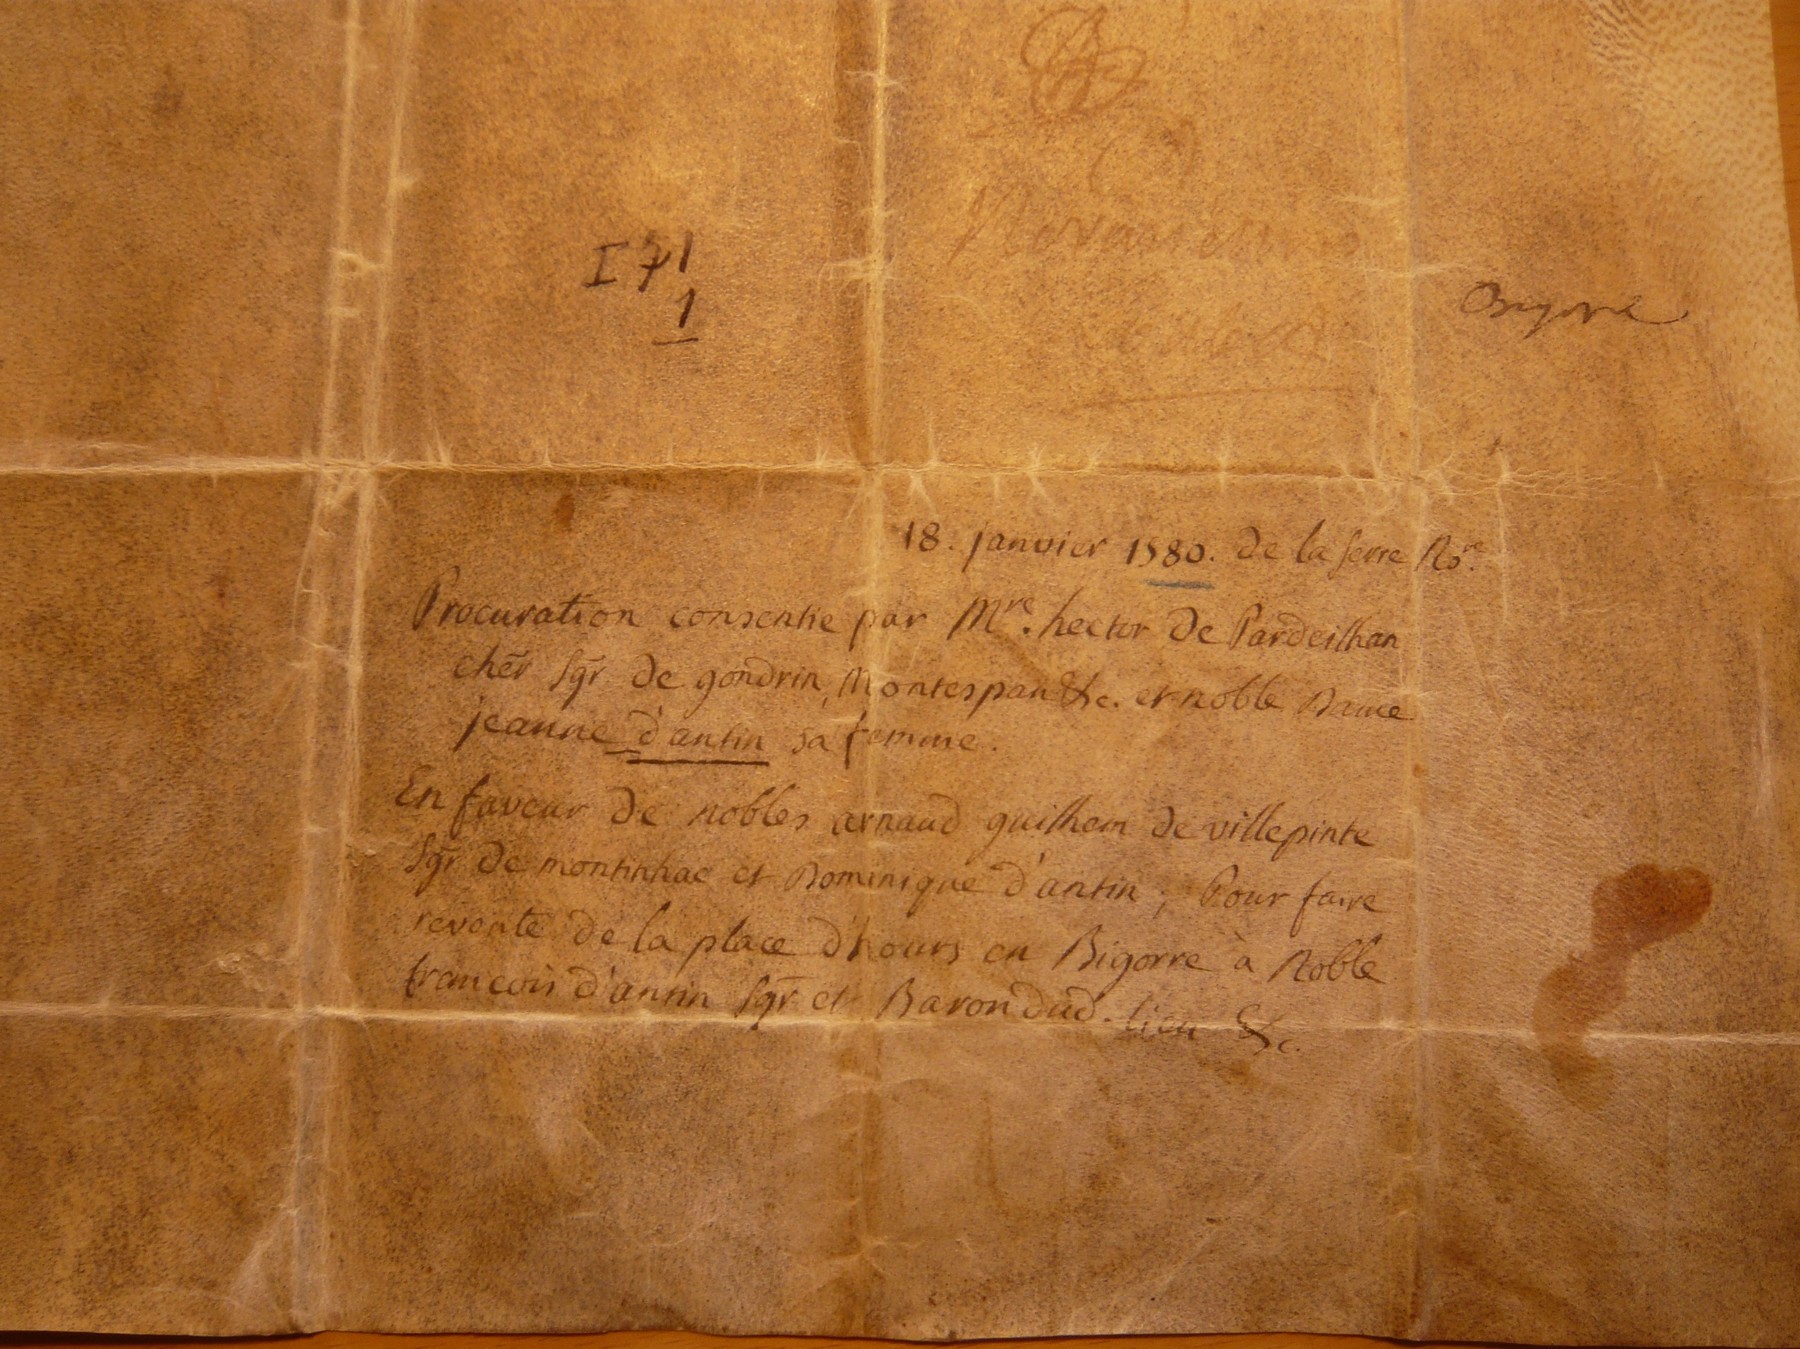 I 71
1
Bigorre
18. janvier 1580. De la serre No.re
Procuration consentie par Mre. hector de Pardeilhan
cher sgr de gondrin, Montespan &c. et noble Dame
jeanne d'antin sa femme.
En faveur de nobles arnaud guilhem de villepinte
sgr de montinhac et Dominique d'antin; Pour faire
revente de la place d'hours en Bigorre à Noble
francois d'antin sgr et Baron dud. lieu &c.